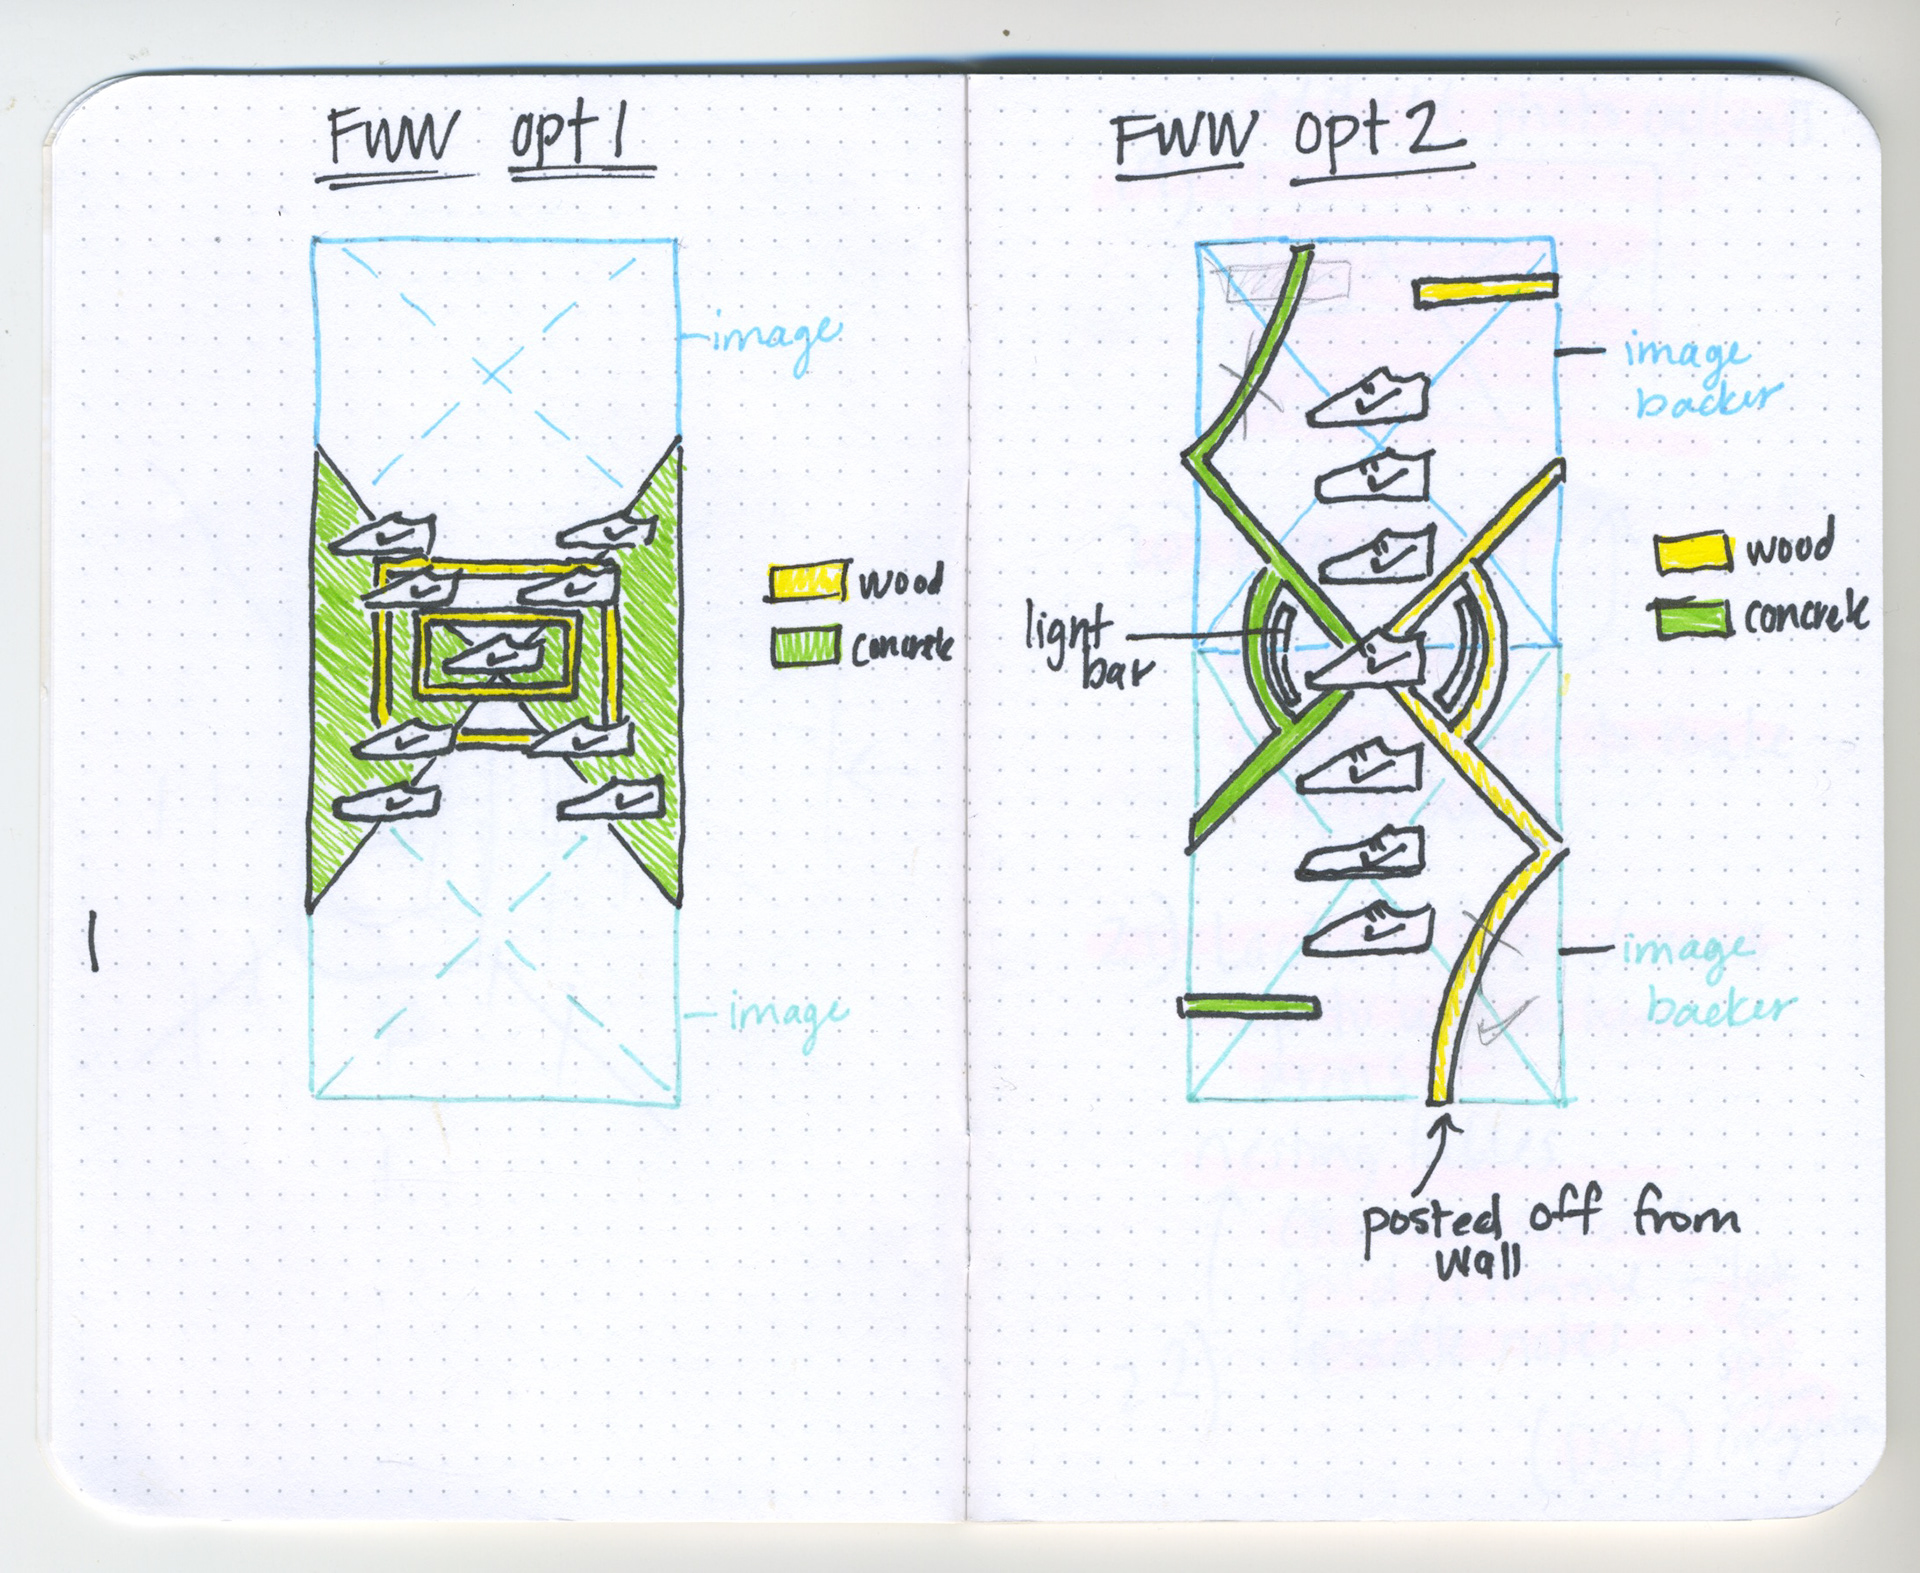 FWW opt 1
image
wood
concrete
image
FWW opt 2
image
backer
wood
concrete
light
bar
image
backer
posted off from
wall